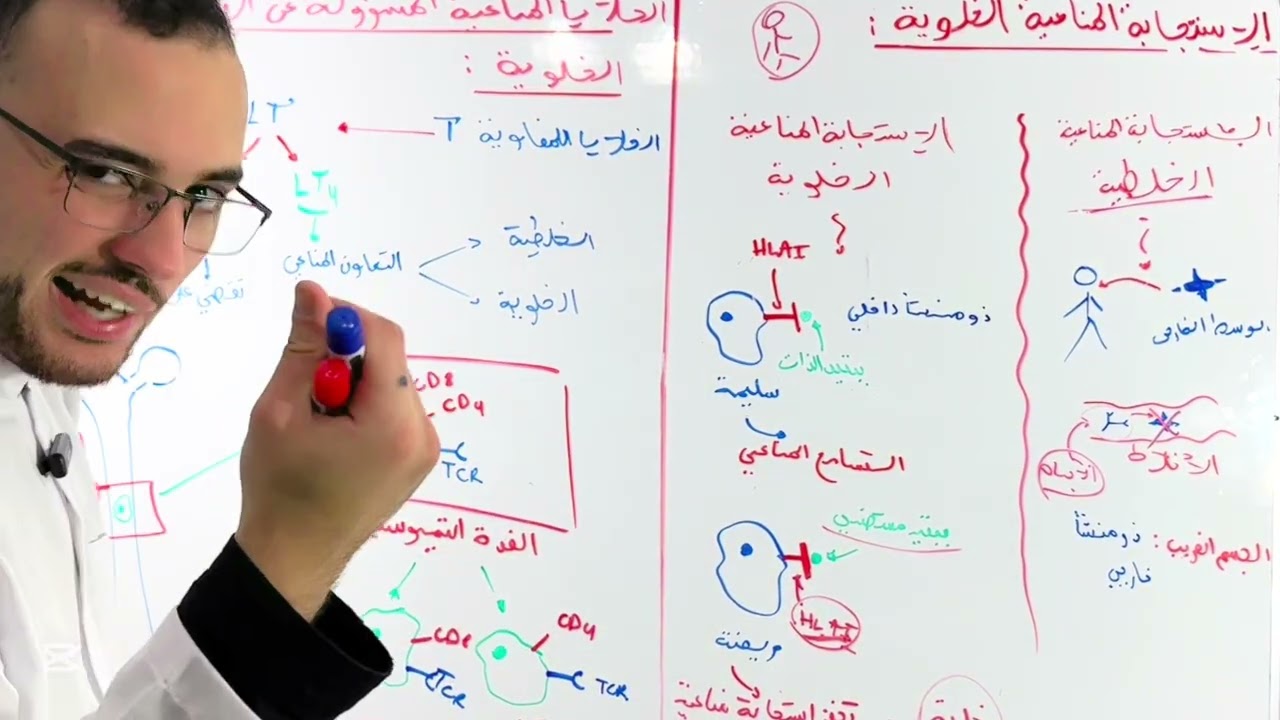 الاستجابة المناعية الخلوية :
الاستجابة المناعية
الخلطية
الوسط الخارجي
الأجسام
الأخلاط
الجسم الغريب : ذو منشأ
خارجي
الاستجابة المناعية
الخلوية
HLAI
ذو منشأ داخلي
ببتيد الذات
سليمة
التسامح المناعي
ببتيد مستضدي
HLAI
مريضة
استجابة مناعية
الخلايا المناعية المسؤولة عن
الخلوية :
الخلايا اللمفاوية T
LT
LT4
التعاون المناعي
الخلطية
الخلوية
تقضي على
CD8
CD4
TCR
الغدة التيموسية
CD8
TCR
CD4
TCR